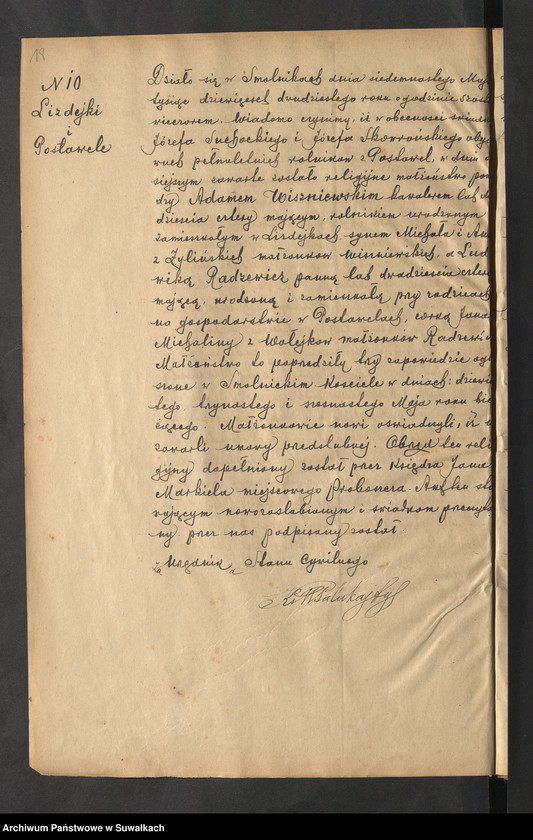 18
N 10
Lizdejki
i
Postawele
Działo się w Smolnikach dnia siedemnastego Maja
tysiąc dziewięćset dwudziestego roku o godzinie
wieczorem. Wiadomo czynimy, iż w obecności świadków
Józefa Suchockiego i Józefa Skowrońskiego oby
wuch pełnoletnich rolników z Postawel, w dniu
siejszym zawarte zostało religijne małżeństwo pom
dzy Adamem Wiszniewskim kawalerem lat
dzieścia cztery mającym, rolnikiem urodzonym
zamieszkałym w Lizdejkach, synem Michała i An
z Żylińskich małżonków Wiszniewskich, a Lud
wiką Radzewicz panną lat dwadzieścia cztery
mającą, urodzoną i zamieszkałą przy rodzicach
na gospodarstwie w Postawelach, córką Jana
Michaliny z Wołejków małżonków Radzewicz
Małżeństwo to poprzedziły trzy zapowiedzie ogło
szone w Smolnickim Kościele w dniach: dziewią
tego, trzynastego i szesnastego Maja roku bie
żącego. Małżonkowie nowi oświadczyli, iż
zawarli umowy przedślubnej. Obrzęd ten reli
gijny dopełniony został przez Księdza Jana
Markiela miejscowego Proboszcza. Akt ten sta
wającym nowozaślubionym i świadkom przeczyta
ny przez nas podpisany został.
Urzędnik Stanu Cywilnego
Archiwum Państwowe w Suwałkach